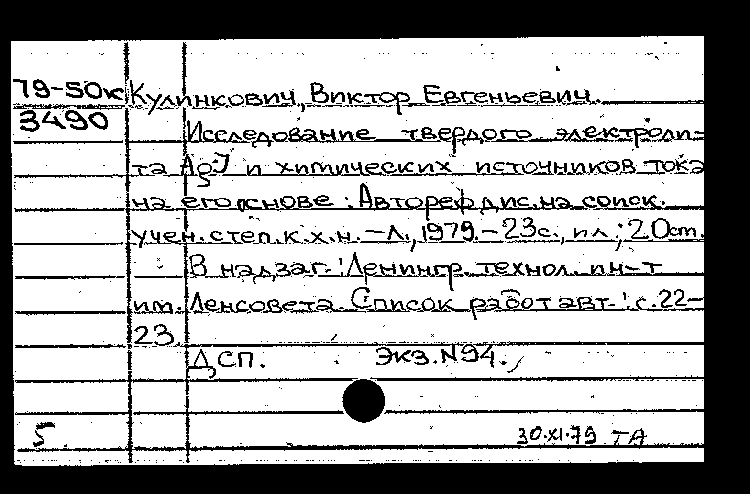 79-50к Кулинкович, Виктор Евгеньевич.
3490
Исследование твердого электроли-
та AgJ и химических источников тока
на его основе: Автореф дис. на соиск.
учен. степ. к. х. н. – Л., 1979. – 23с., ил; 20 cm.
В надзаг.: Ленингр. технол. ин-т
им. Ленсовета. Список работ авт.: с. 22–
23.
ДСП. Экз. N94.
5 30.XI.79 ТА